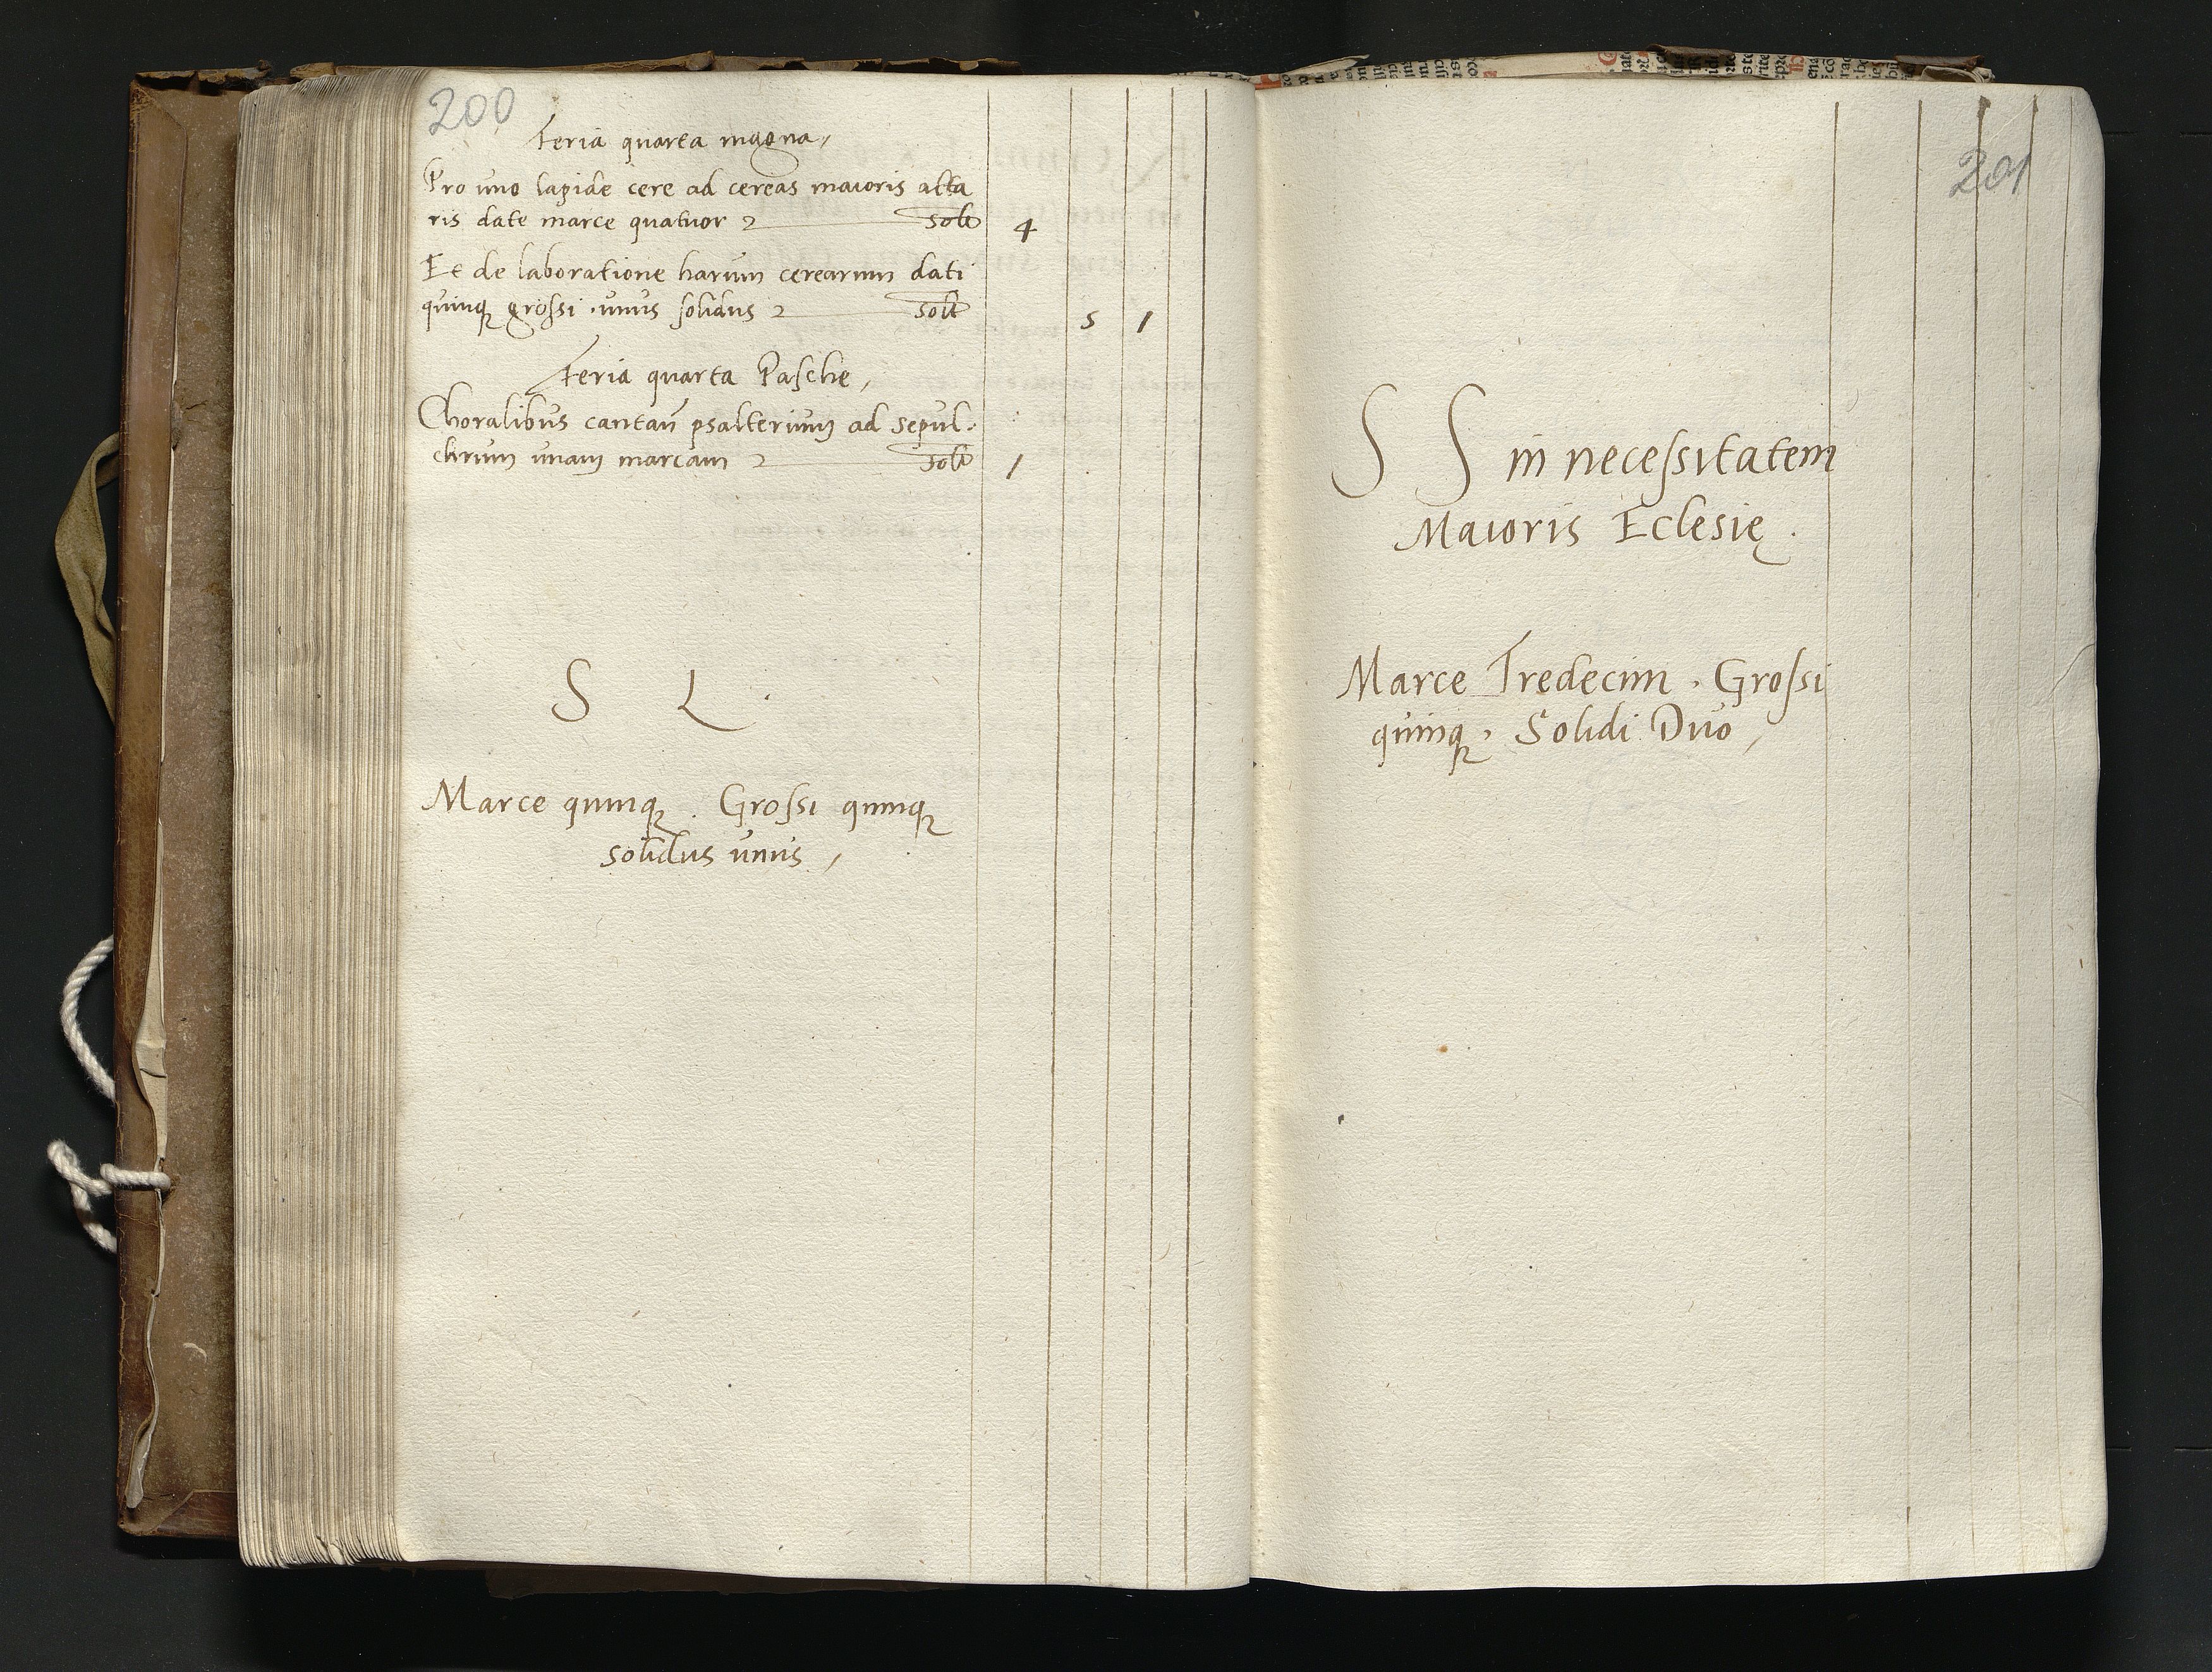 200
Feria quarta magna,
Pro uno lapide cere ad cereas maioris alta
ris date marce quatuor solt 4
Et de laboratione harum cerearum dati
quinq grossi · unus solidus solt 5 1
Feria quarta Pasche,
Choralibus cantan̄ psalterium ad sepul-
chrum unam marcam solt 1
S L .
Marce quinq . Grossi quinq
solidus unus ,
201
S S in necessitatem
Maioris Eclesię .
Marce Tredecim . Grossi
quinq . Solidi Duo ,